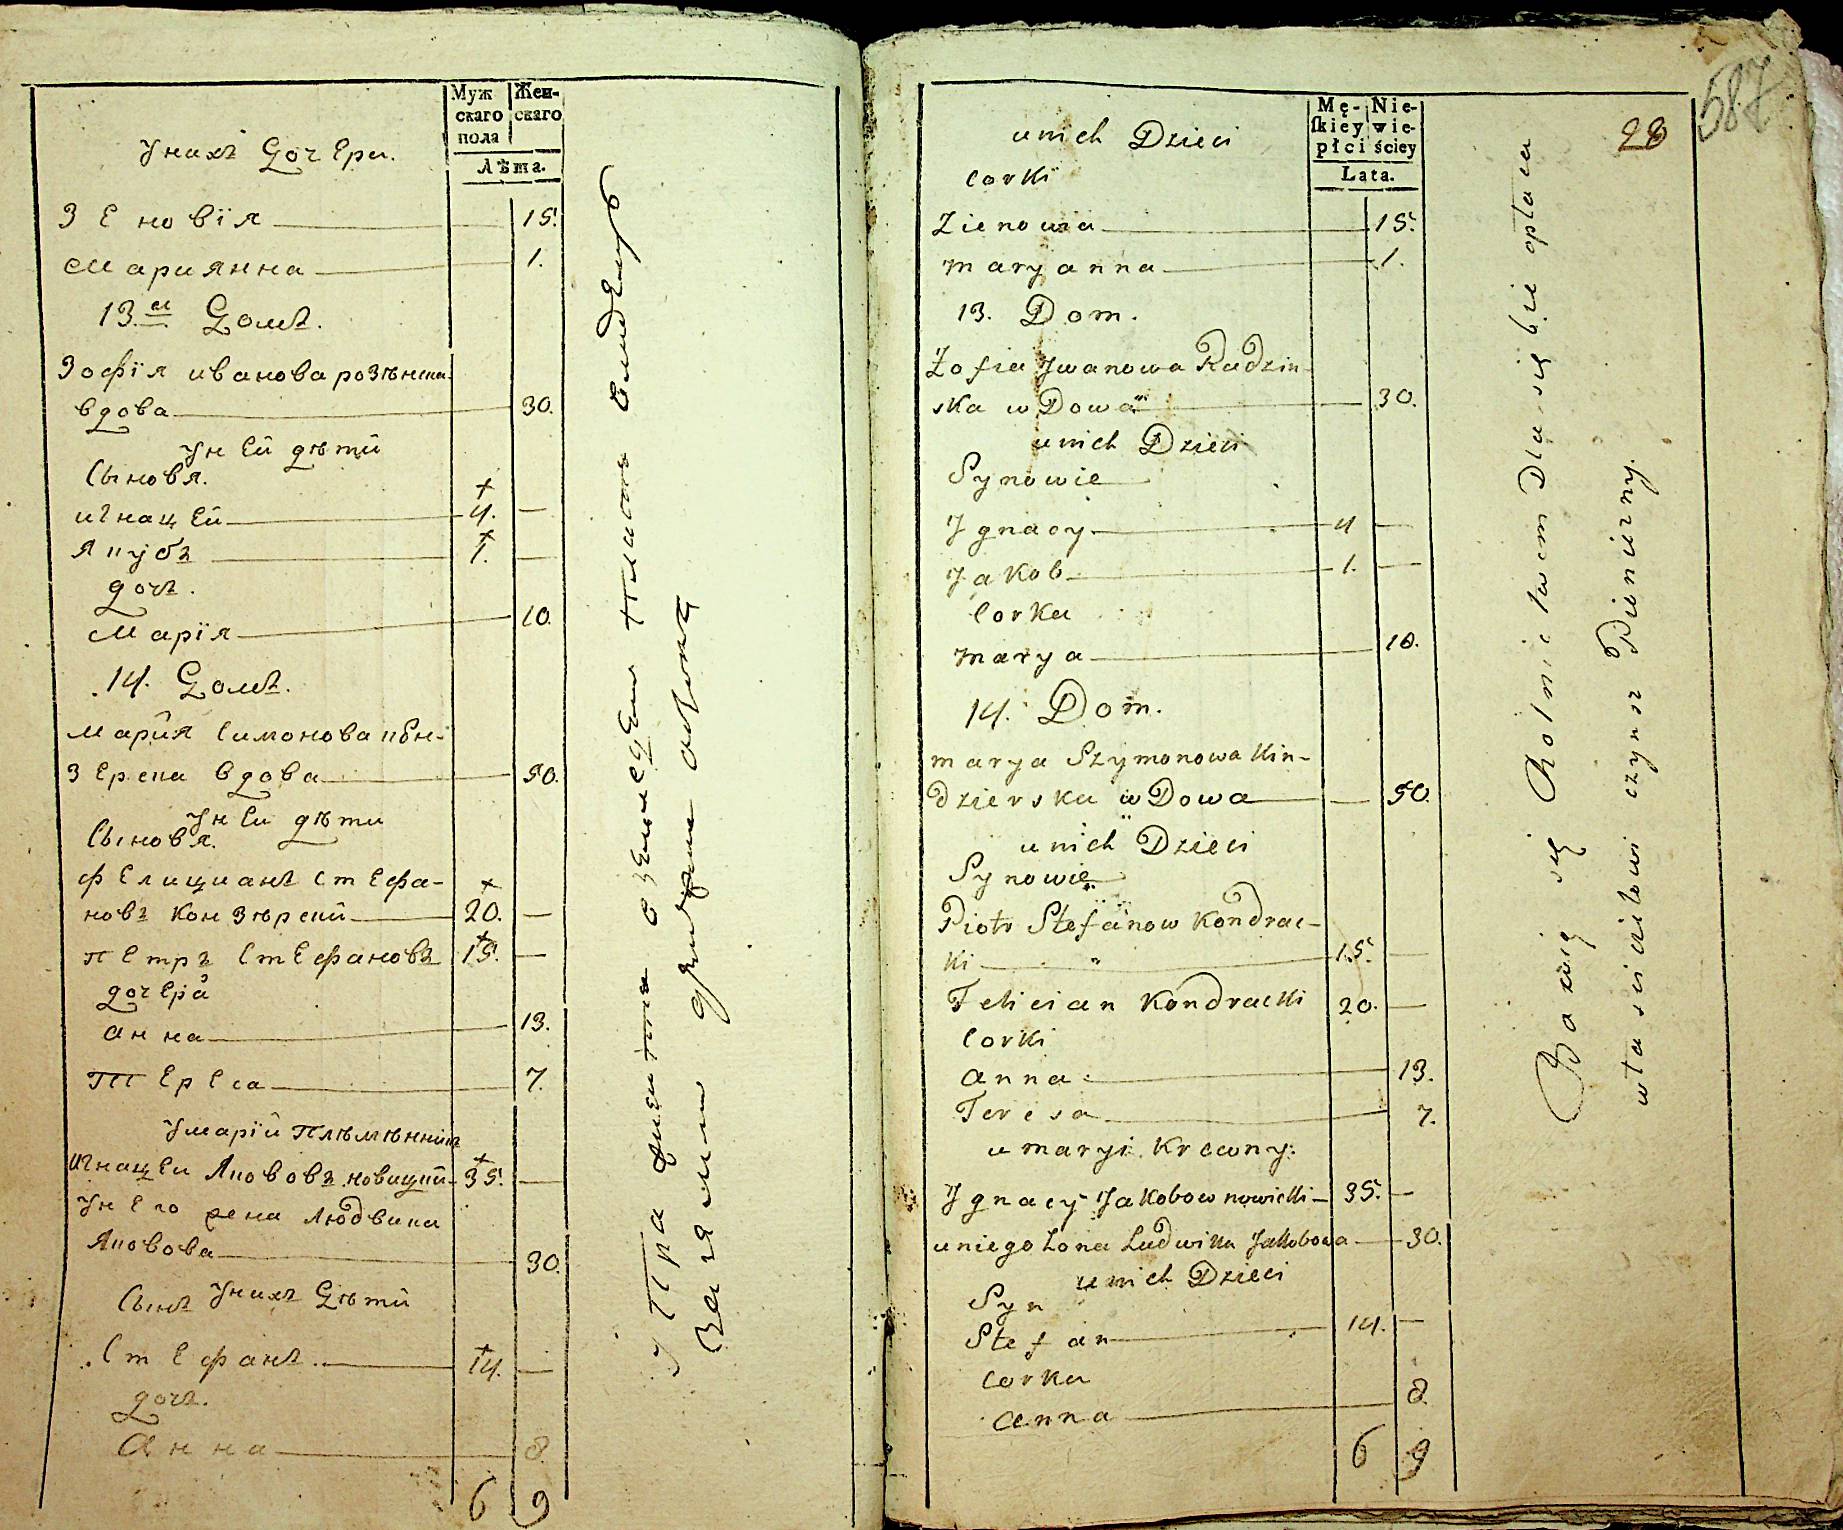 Муж
скаго
пола
Жен-
скаго
Лѣта.
Унихъ Дочери.
Зеновїя 15.
Марианна 1.
13.й Домъ.
Зофїя иванова
вдова 30.
Уней дѣти
Сыновя.
игнацей + 4. —
Якубъ + 1. —
дочь.
Марїя 10.
14. Домъ.
Марйя Симонова
вдова 50.
Уней дѣти
Сыновя.
Фелицианъ Стефа-
новъ + 20. —
Петръ Стефановъ + 15. —
дочера
анна 13.
Тереса 7.
Умарїи
Игнацеи Якововъ новицкий + 35. —
Унего жена людвика
Яковова 30.
Унихъ Дѣти
Сынъ
Стефанъ + 14. —
дочь.
Анна 8.
6 9
Mę-
skiey
płci
Nie-
wie-
ściey
Lata.
28
587
u nich Dzieci
Corki
Zienowia 15.
Maryanna 1.
13. Dom.
Zofia Jwanowa Radzin-
ska wDowa 30.
u nich Dzieci
Synowie
Jgnacy 4 —
Jakob 1. —
Corka
Marya 10.
14. Dom.
Marya Szymonowa Kin-
dzierska wDowa — 50.
u nich Dzieci
Synowie
Piotr Stefanow Kondrac-
ki 15. —
Felician Kondracki 20. —
Corki
Anna 13.
Teresa 7.
u Maryi Krewny:
Jgnacy Jakobow Nowicki 35. —
u niego Żona Ludwika Jakobowa 30.
u nich Dzieci
Syn
Stefan 14. —
Corka
Anna 8.
6 9
Bawią się Rolnictwem Dla siebie opłaca
właścicielowi czynsz Pienieżny.